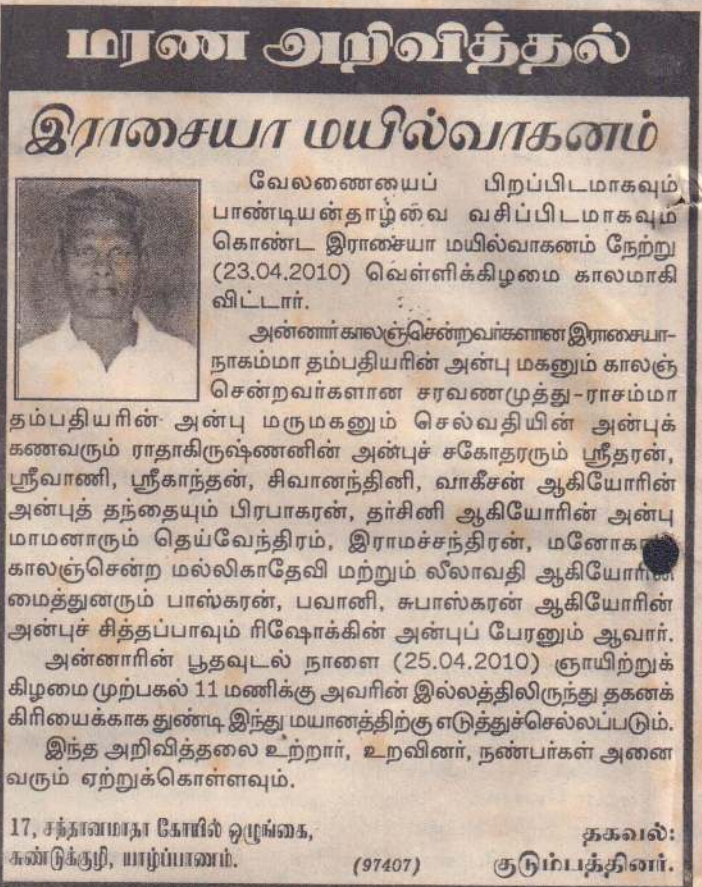 மரண அறிவித்தல்
இராசையா மயில்வாகனம்
வேலணையைப் பிறப்பிடமாகவும்
பாண்டியன்தாழ்வை வசிப்பிடமாகவும்
கொண்ட இராசையா மயில்வாகனம் நேற்று
(23.04.2010) வெள்ளிக்கிழமை காலமாகி
விட்டார்.
அன்னார் காலஞ்சென்றவர்களான இராசையா-
நாகம்மா தம்பதியரின் அன்பு மகனும் காலஞ்
சென்றவர்களான சரவணமுத்து-ராசம்மா
தம்பதியரின் அன்பு மருமகனும் செல்வதியின் அன்புக்
கணவரும் ராதாகிருஷ்ணனின் அன்புச் சகோதரரும் ஸ்ரீதரன்,
ஸ்ரீவாணி, ஸ்ரீகாந்தன், சிவானந்தினி, வாகீசன் ஆகியோரின்
அன்புத் தந்தையும் பிரபாகரன், தர்சினி ஆகியோரின் அன்பு
மாமனாரும் தெய்வேந்திரம், இராமச்சந்திரன்,
காலஞ்சென்ற மல்லிகாதேவி மற்றும் லீலாவதி ஆகியோரின்
மைத்துனரும் பாஸ்கரன், பவானி, சுபாஸ்கரன் ஆகியோரின்
அன்புச் சித்தப்பாவும் ரிஷோக்கின் அன்புப் பேரனும் ஆவார்.
அன்னாரின் பூதவுடல் நாளை (25.04.2010) ஞாயிற்றுக்
கிழமை முற்பகல் 11 மணிக்கு அவரின் இல்லத்திலிருந்து தகனக்
கிரியைக்காக துண்டி இந்து மயானத்திற்கு எடுத்துச்செல்லப்படும்.
இந்த அறிவித்தலை உற்றார், உறவினர், நண்பர்கள் அனை
வரும் ஏற்றுக்கொள்ளவும்.
17, சந்தானமாதா கோயில் ஒழுங்கை,
சுண்டுக்குழி, யாழ்ப்பாணம்.
(97407)
தகவல்:
குடும்பத்தினர்.